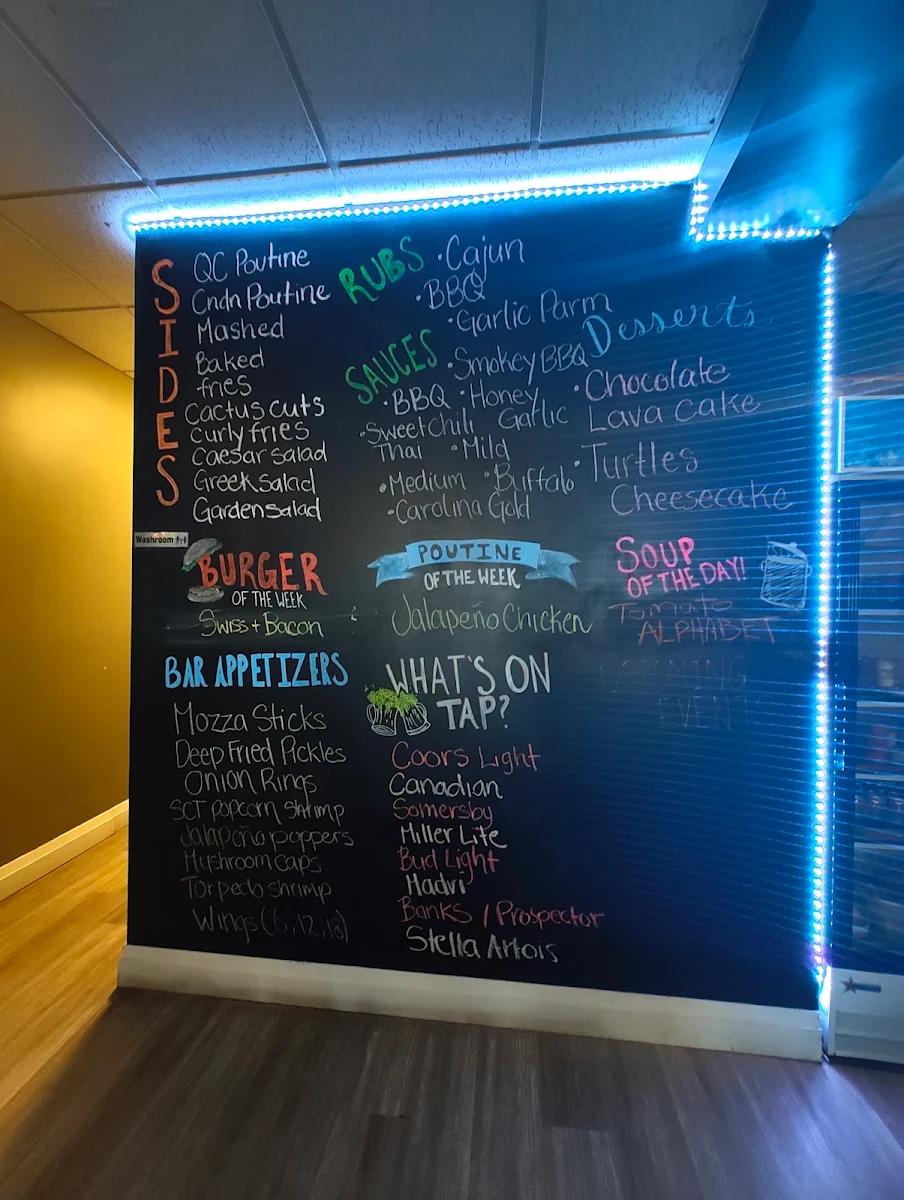 SIDES
QC Poutine
Cndn Poutine
Mashed
Baked
fries
Cactus cuts
Curly fries
Caesar salad
Greek salad
Garden salad
RUBS
• Cajun
• BBQ
• Garlic Parm
SAUCES
• Smokey BBQ
• BBQ • Honey
Garlic
• Sweet chili
Thai • Mild
• Medium • Buffalo
• Carolina Gold
Desserts
• Chocolate
Lava Cake
• Turtles
Cheesecake
Washroom
BURGER
OF THE WEEK
Swiss + Bacon
POUTINE
OF THE WEEK
Jalapeño Chicken
SOUP
OF THE DAY!
Tomato
ALPHABET
BAR APPETIZERS
Mozza Sticks
Deep Fried Pickles
Onion Rings
SCT popcorn shrimp
Jalapeño poppers
Mushroom caps
Torpedo shrimp
Wings (6, 12, 18)
WHAT'S ON
TAP?
Coors Light
Canadian
Somersby
Miller Lite
Bud Light
Madri
Banks / Prospector
Stella Artois
UPCOMING
EVENTS